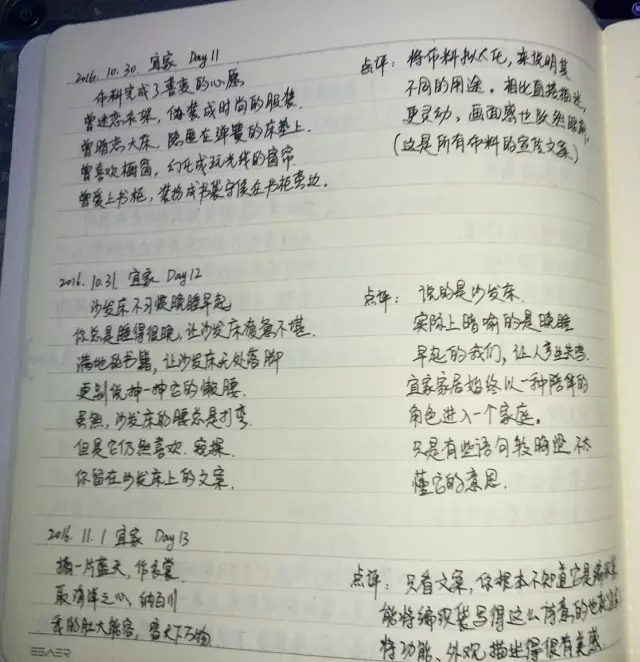 2016.10.30 宜家 Day11
布料完成了善变的心愿,
曾迷恋衣架,伪装成时尚的服装.
曾暗恋大床,隐匿在弹簧的床垫上.
曾喜欢橱窗,幻化成玩光线的窗帘.
曾爱上书柜,装扮成书装守候在书柜旁边.
点评:将布料拟人化,来说明其
不同的用途。相比直接描述,
更灵动,画面感也跃然
(这是所有布料的宣传文案)
2016.10.31 宜家 Day12
沙发床不习惯晚睡早起
你总是睡得很晚,让沙发床疲惫不堪.
满地的书籍,让沙发床无处落脚
更别说抻一抻它的懒腰.
虽然,沙发床的腰总是打弯.
但是它仍然喜欢.窥探.
你留在沙发床上的文案.
点评:说的是沙发床.
实际上暗喻的是晚睡
早起的我们,让人
宜家家居始终以一种陪伴的
角色进入一个家庭。
只是有些语句较晦涩不太
懂它的意思.
2016.11.1 宜家 Day13
摘一片蓝天,作衣裳.
取海洋之心,纳百川
肚大能容,容天下万物
点评:只看文案,你根本不知道它是编织袋
能将编织袋写得这么诗意的也
将功能、外观描述得很有美感.
ESAER